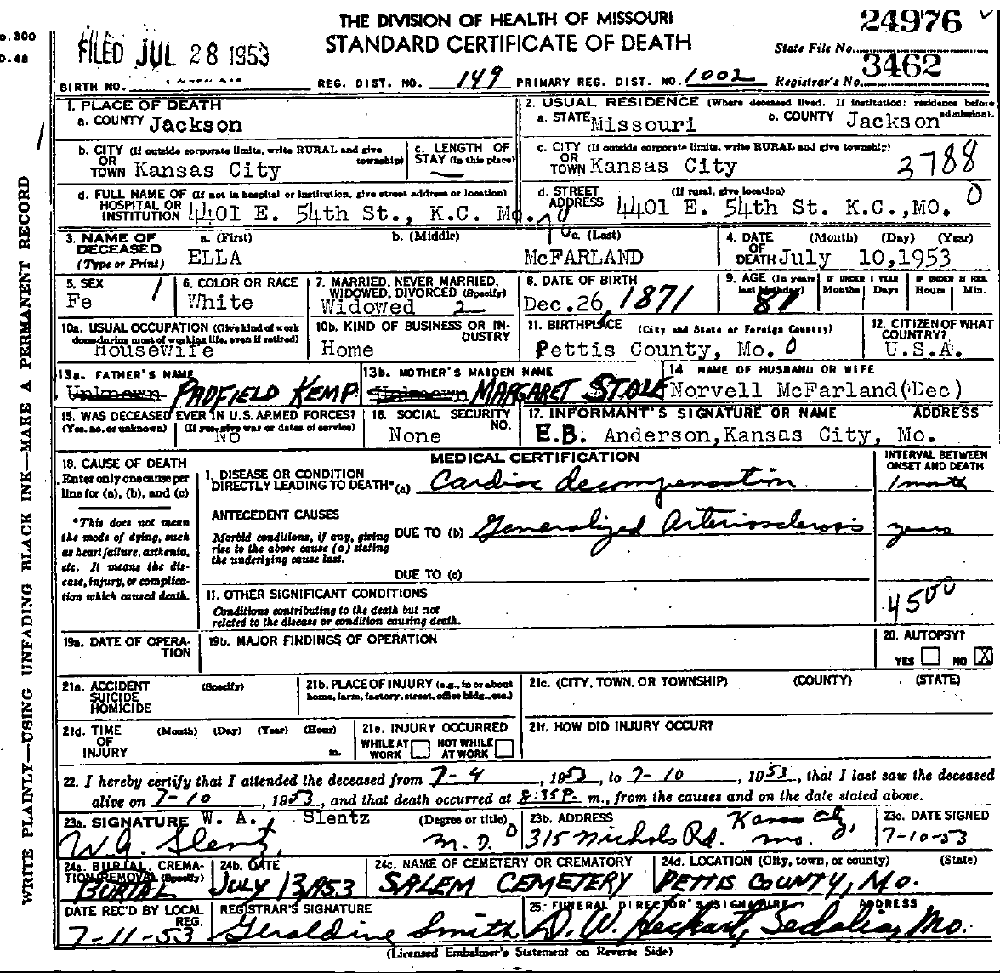 THE DIVISION OF HEALTH OF MISSOURI
STANDARD CERTIFICATE OF DEATH
24976
State File No.
FILED JUL 28 1953
3462
BIRTH NO. REG. DIST. NO. 149 PRIMARY REG. DIST. NO. 1002 Registrar's No.
WRITE PLAINLY—USING UNFADING BLACK INK—MAKE A PERMANENT RECORD
1. PLACE OF DEATH
a. COUNTY Jackson
2. USUAL RESIDENCE (Where deceased lived. If institution: residence before admission).
a. STATE Missouri b. COUNTY Jackson
b. CITY (If outside corporate limits, write RURAL and give township) OR TOWN Kansas City
c. LENGTH OF STAY (in this place) —
c. CITY (If outside corporate limits, write RURAL and give township) OR TOWN Kansas City
3788
d. FULL NAME OF (If not in hospital or institution, give street address or location) HOSPITAL OR INSTITUTION 4401 E. 54th St., K.C. Mo.
d. STREET ADDRESS (If rural, give location) 4401 E. 54th St. K.C.,MO. 0
3. NAME OF DECEASED (Type or Print) a. (First) ELLA b. (Middle) c. (Last) McFARLAND
4. DATE OF DEATH (Month) (Day) (Year) July 10,1953
5. SEX Fe 1
6. COLOR OR RACE White
7. MARRIED, NEVER MARRIED, WIDOWED, DIVORCED (Specify) Widowed 2
8. DATE OF BIRTH Dec.26,1871
9. AGE (In years last birthday) 81 IF UNDER 1 YEAR Months Days IF UNDER 24 HRS. Hours Min.
10a. USUAL OCCUPATION (Give kind of work done during most of working life, even if retired) Housewife
10b. KIND OF BUSINESS OR INDUSTRY Home
11. BIRTHPLACE (City and State or Foreign Country) Pettis County, Mo. 0
12. CITIZEN OF WHAT COUNTRY? U.S.A.
13a. FATHER'S NAME Unknown PADFIELD KEMP
13b. MOTHER'S MAIDEN NAME Unknown MARGARET STOLE
14 NAME OF HUSBAND OR WIFE Norvell McFarland(Dec)
15. WAS DECEASED EVER IN U.S. ARMED FORCES? (Yes, no, or unknown) (If yes, give war or dates of service) No
16. SOCIAL SECURITY NO. None
17. INFORMANT'S SIGNATURE OR NAME ADDRESS
E.B. Anderson,Kansas City, Mo.
18. CAUSE OF DEATH
Enter only one cause per line for (a), (b), and (c)
*This does not mean the mode of dying, such as heart failure, asthenia, etc. It means the disease, injury, or complication which caused death.
MEDICAL CERTIFICATION
INTERVAL BETWEEN ONSET AND DEATH
1. DISEASE OR CONDITION DIRECTLY LEADING TO DEATH*(a) Cardiac decompensation 1 month
ANTECEDENT CAUSES
Morbid conditions, if any, giving rise to the above cause (a) stating the underlying cause last.
DUE TO (b) Generalized Arteriosclerosis years
DUE TO (c)
11. OTHER SIGNIFICANT CONDITIONS
Conditions contributing to the death but not related to the disease or condition causing death.
4500
19a. DATE OF OPERATION
19b. MAJOR FINDINGS OF OPERATION
20. AUTOPSY?
YES NO X
21a. ACCIDENT SUICIDE HOMICIDE (Specify)
21b. PLACE OF INJURY (e.g., in or about home, farm, factory, street, office bldg., etc.)
21c. (CITY, TOWN, OR TOWNSHIP) (COUNTY) (STATE)
21d. TIME OF INJURY (Month) (Day) (Year) (Hour) m.
21e. INJURY OCCURRED WHILE AT WORK NOT WHILE AT WORK
21f. HOW DID INJURY OCCUR?
22. I hereby certify that I attended the deceased from 7-4, 1953, to 7-10, 1953, that I last saw the deceased
alive on 7-10, 1953, and that death occurred at 8:35P. m., from the causes and on the date stated above.
23a. SIGNATURE W. A. Slentz (Degree or title)
W.A. Slentz, M.D.
23b. ADDRESS 315 Nichols Rd. Kansas City, Mo.
23c. DATE SIGNED 7-10-53
24a. BURIAL, CREMATION, REMOVAL (Specify) BURIAL
24b. DATE JULY 13,1953
24c. NAME OF CEMETERY OR CREMATORY SALEM CEMETERY
24d. LOCATION (City, town, or county) (State) PETTIS COUNTY, MO.
DATE REC'D BY LOCAL REG. 7-11-53
REGISTRAR'S SIGNATURE Geraldine Smith
25. FUNERAL DIRECTOR'S SIGNATURE ADDRESS
D.W. Heckart, Sedalia, Mo.
(Licensed Embalmer's Statement on Reverse Side)